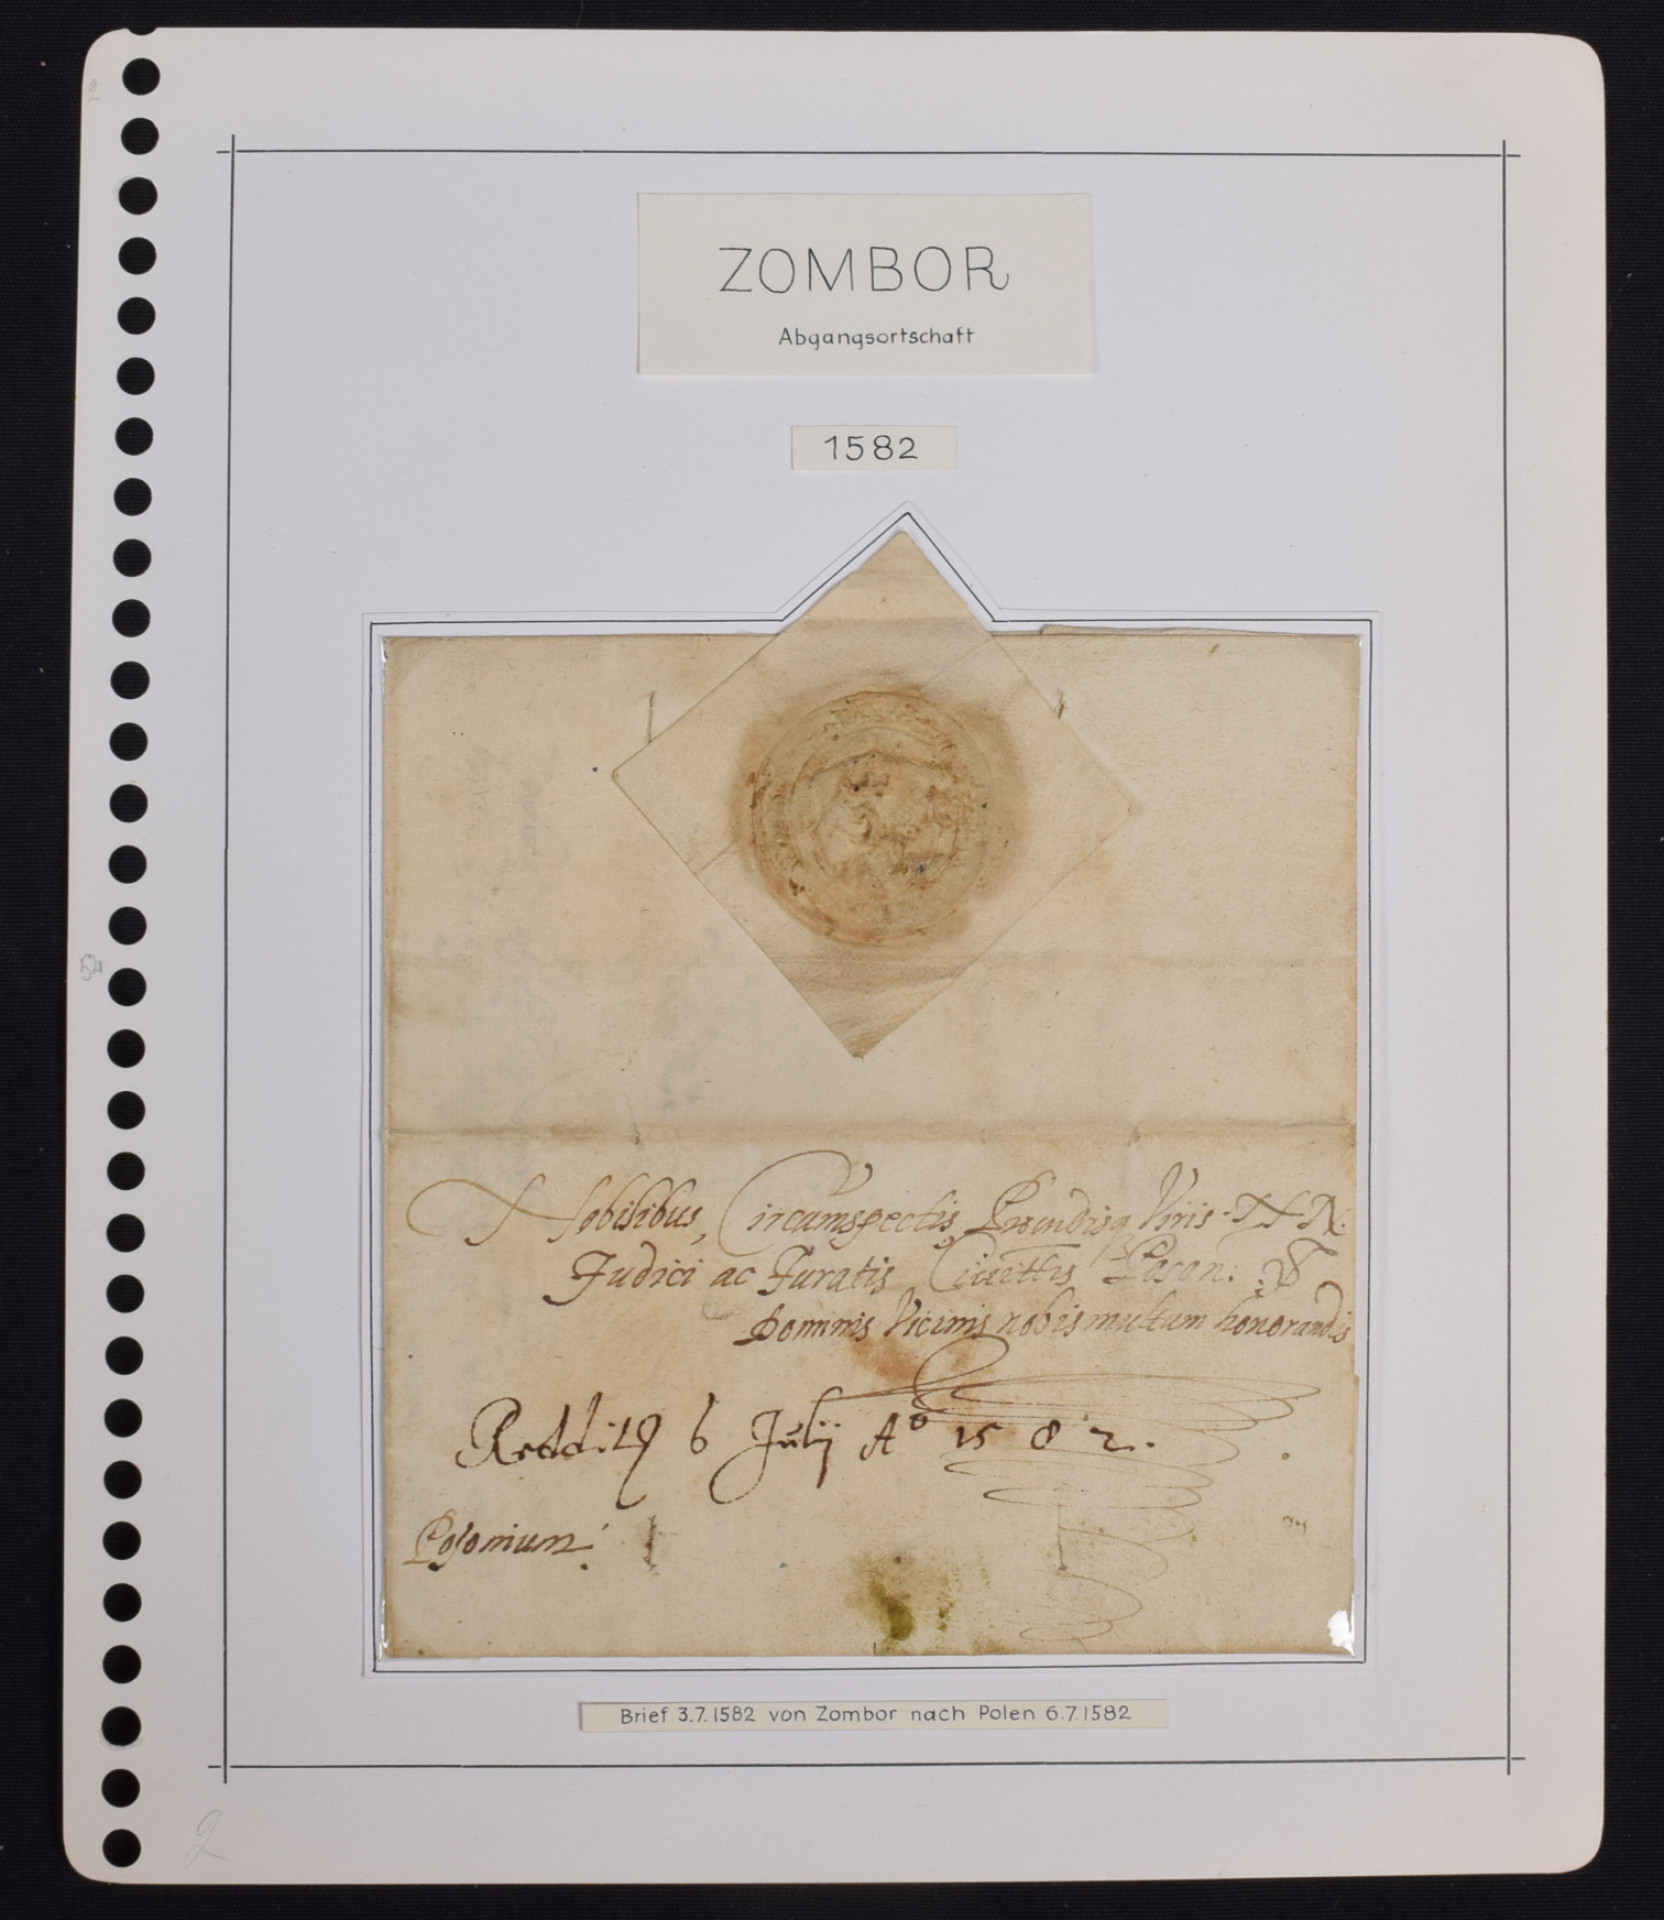 ZOMBOR
Abgangsortschaft
1582
Nobilibus, Circumspectis Viris N N.
Judici ac Juratis Poson:
Dominis Vicinis nobis multum honorandis
6 Julij Aº 1582.
Posonium:
Brief 3.7.1582 von Zombor nach Polen 6.7.1582
2